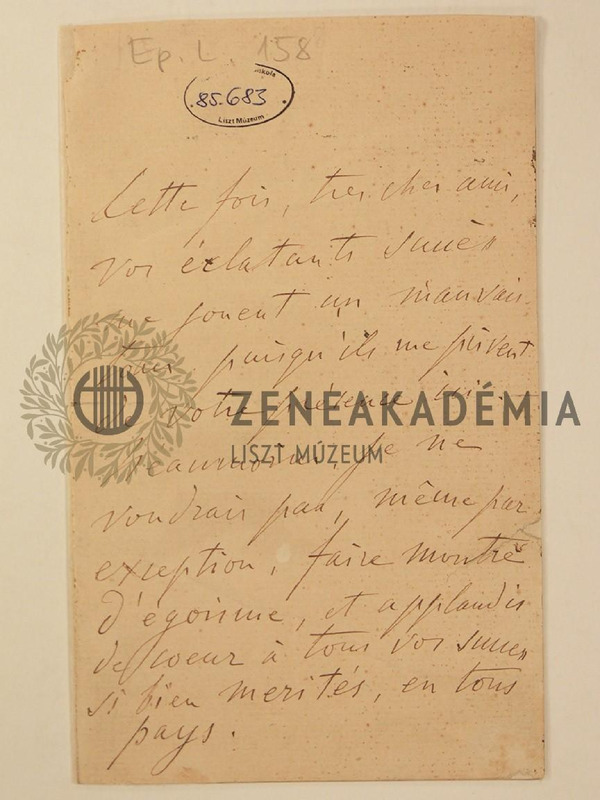 Ep. L. 158
85.683
Liszt Múzeum
Cette fois, très cher ami,
vos éclatants succès
me jouent un mauvais
tour puisqu'ils me privent
de votre présence ici.
Néanmoins, je ne
voudrais pas, même par
exception, faire montre
d'égoisme, et applaudis
de coeur à tous vos succès
si bien merités, en tous
pays.
ZENEAKADÉMIA
LISZT MÚZEUM